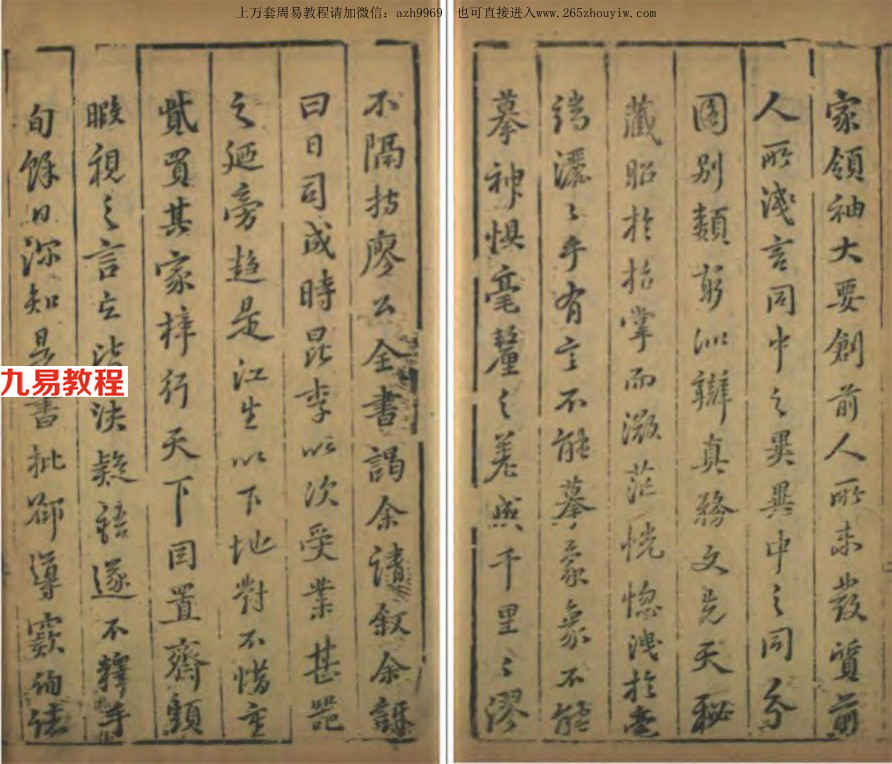 上万套周易教程请加微信：azh9969　也可直接进入www.265zhouyiw.com
家領袖大要創前人所未發質前
人所淺言同中之異異中之同分
圖別類窮泒辯真務文先天秘
藏昭於指掌而灝茫恍惚洩於毫
端灑〻乎有言不能摹象象不能
摹神惧毫釐之差與千里之謬
不隔指廖公全書謁余請叙余訝
曰日司成時昆季以次受業甚器
之廼旁趋是江生以下地對不惜重
貲買其家梓行天下因置齋頭
暇視之言立決疑語遂不釋手
旬餘日深知是書批郤導窾
九易教程